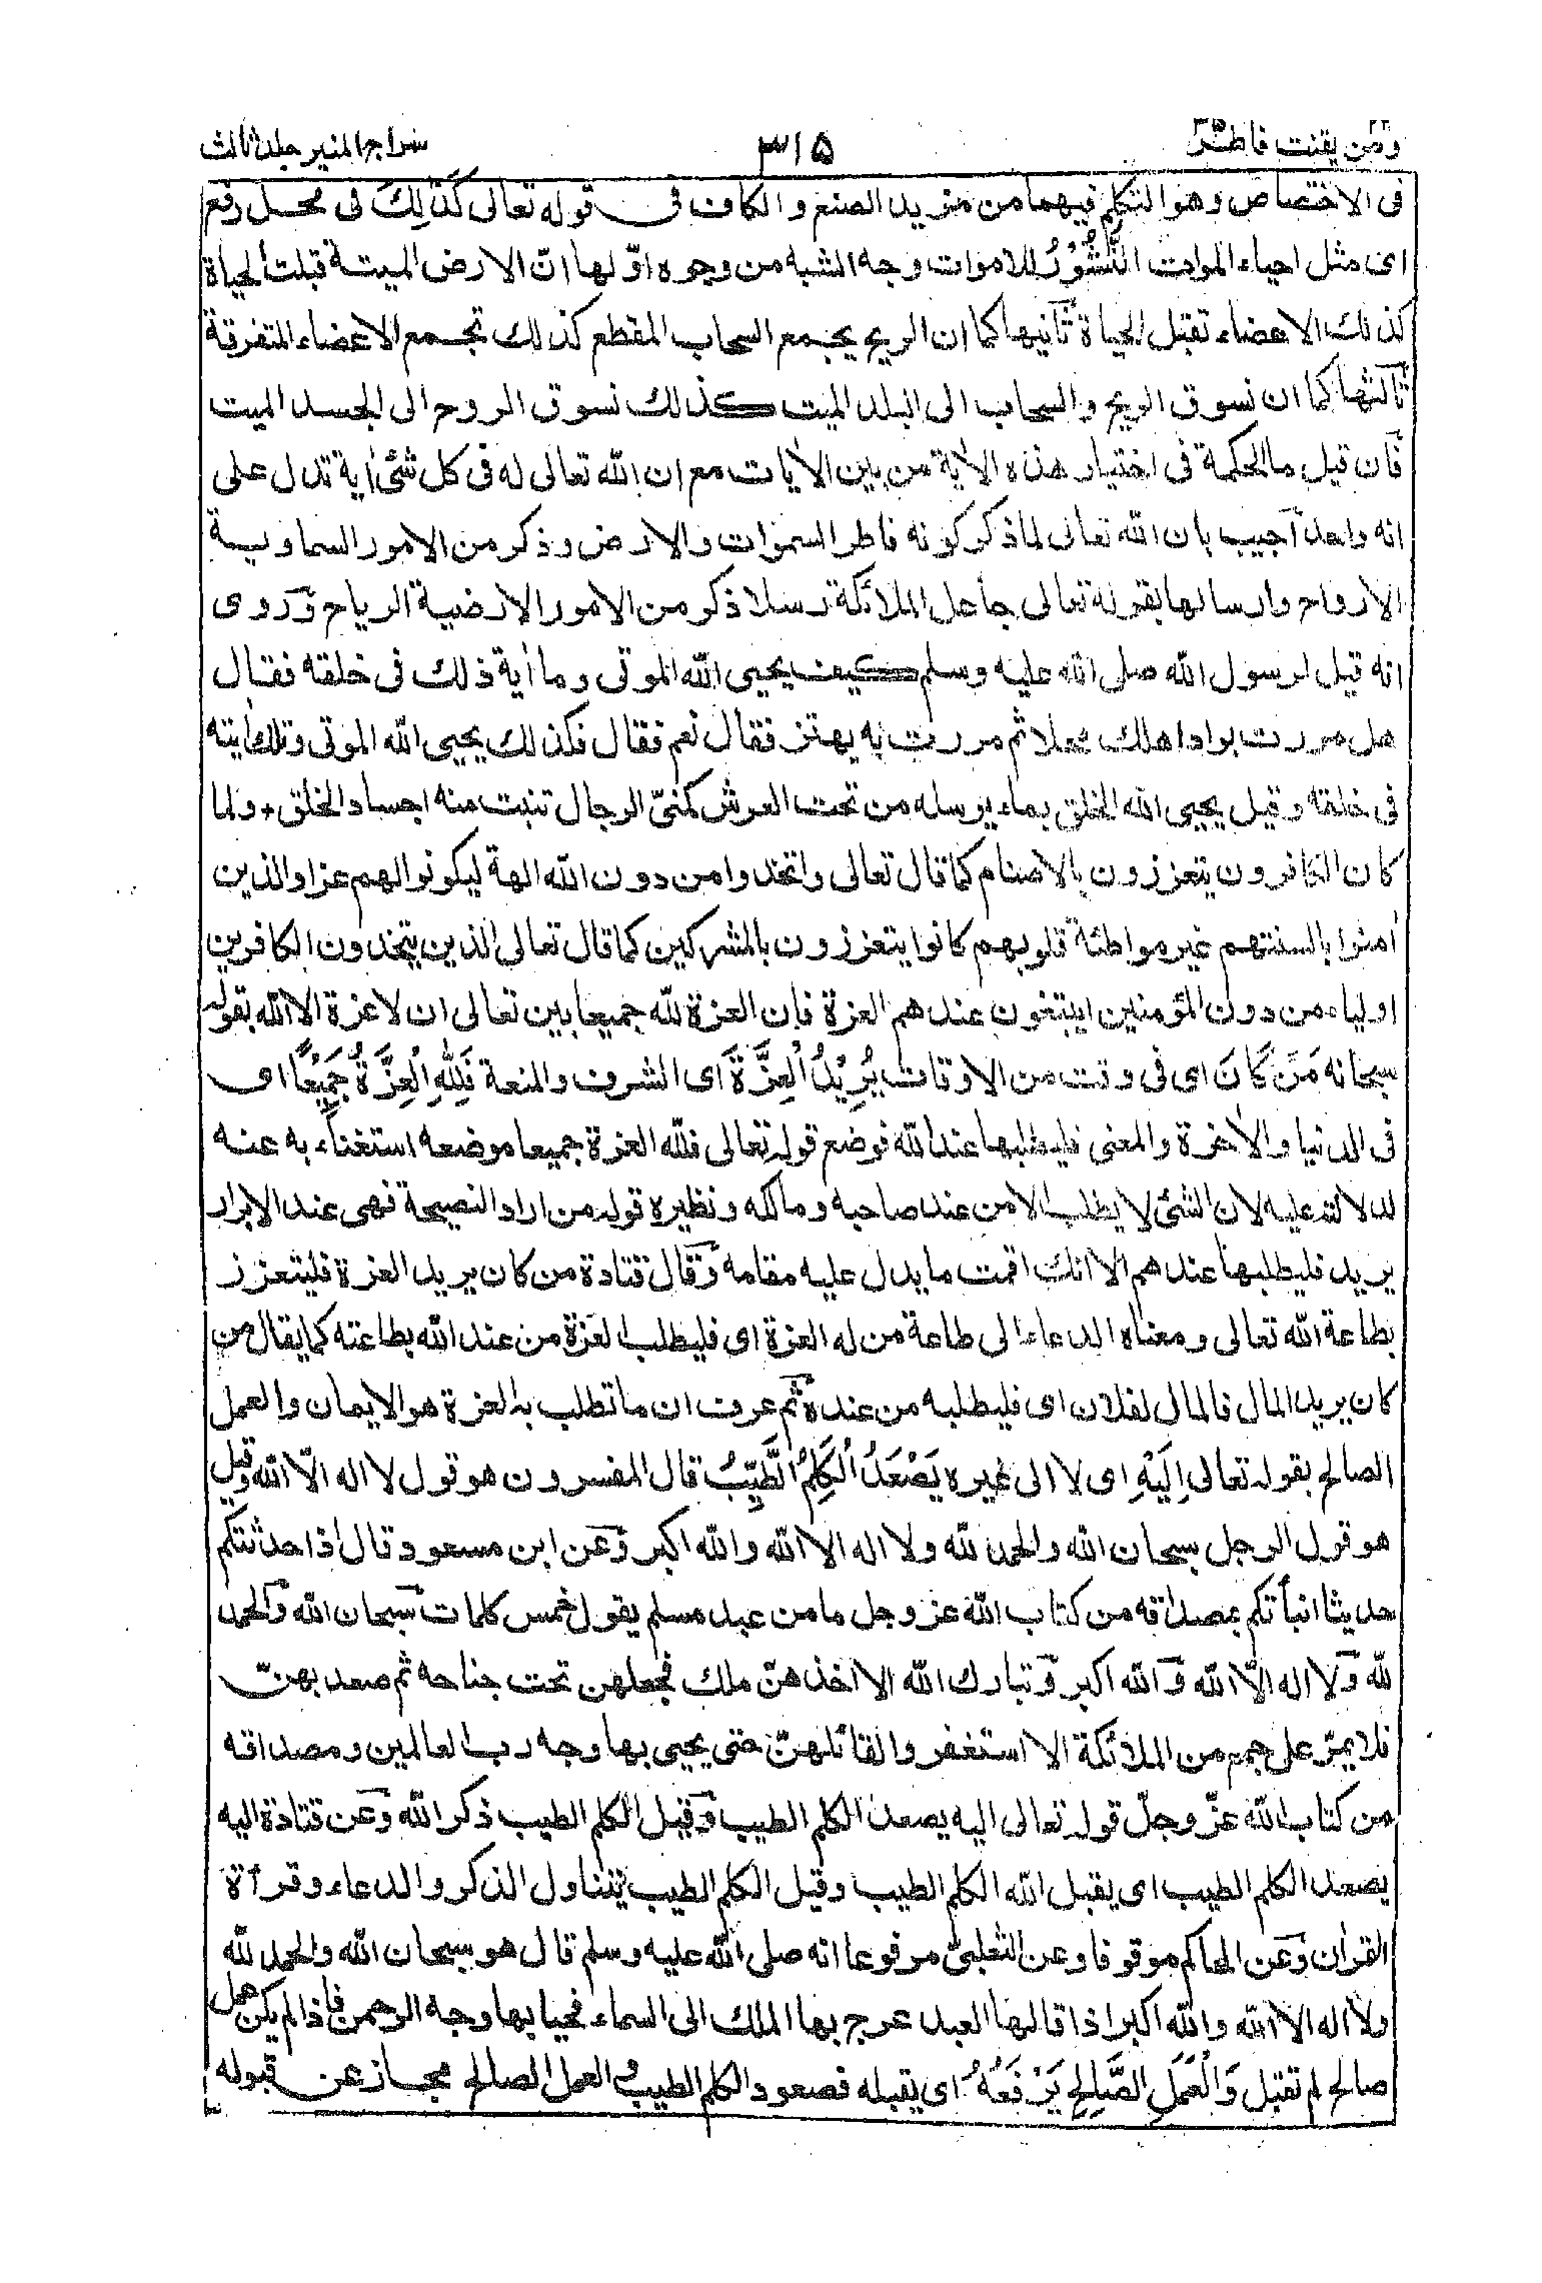 ومن يقنت فاطر ٣١٥ سراج المنير جلد ثالث
فى الاختصاص وهو التكلم فيهما من مزيد الصنع و الكاف فى قوله تعالى كَذٰلِكَ فى محل رفع
اى مثل احياء الموات النُّشُوْرُ للاموات وجه الشبه من وجوه اوّلها انّ الارض الميتة قبلت الحياة
كذلك الاعضاء تقبل الحياة ثانيها كما ان الريح يجمع السحاب المقطع كذلك تجمع الاعضاء المتفرقة
ثالثها كما ان نسوق الريح والسحاب الى البلد الميت كذلك نسوق الروح الى الجسد الميت
فان قيل ما الحكمة فى اختيار هذه الاٰية من بين الاٰيات مع ان الله تعالى له فى كل شئ اٰية تدل على
انه واحد اجيب بان الله تعالى لما ذكر كونه فاطر السمٰوات والارض وذكر من الامور السماوية
الارواح وارسالها بقوله تعالى جاعل الملائكة رسلا ذكر من الامور الارضية الرياح وروى
انه قيل لرسول الله صلى الله عليه وسلم كيف يحيى الله الموتى وما اٰية ذلك فى خلقه فقال
هل مررت بواد اهلك محلا ثم مررت به يهتز فقال نعم فقال فكذلك يحيى الله الموتى وتلك اٰيته
فى خلقه وقيل يحيى الله الخلق بماء يرسله من تحت العرش كمنىّ الرجال تنبت منه اجساد الخلق + ولما
كان الكافرون يتعززون بالاصنام كما قال تعالى واتخذوا من دون الله الهة ليكونوا لهم عزا والذين
اٰمنوا بالسنتهم غير مواطئة قلوبهم كانوا يتعززون بالمشركين كما قال تعالى الذين يتخذون الكافرين
اولياء من دون المؤمنين ايبتغون عندهم العزة فان العزة لله جميعا بين تعالى ان لا عزة الا الله بقوله
سبحانه مَنْ كَانَ اى فى وقت من الاوقات يُرِيْدُ الْعِزَّةَ اى الشرف والمنعة فَلِلّٰهِ الْعِزَّةُ جَمِيْعًا اى
فى الدنيا والاٰخرة والمعنى فليطلبها عند الله فوضع قوله تعالى فلله العزة جميعا موضعه استغناء به عنه
لدلالته عليه لان الشئ لا يطلب الا من عند صاحبه ومالكه ونظيره قوله من اراد النصيحة فهى عند الابرار
يريد فليطلبها عندهم الا انك اقمت ما يدل عليه مقامه وقال قتادة من كان يريد العزة فليتعزز
بطاعة الله تعالى ومعناه الدعاء الى طاعة من له العزة اى فليطلب العزة من عند الله بطاعته كما يقال من
كان يريد المال فالمال لفلان اى فليطلبه من عنده ثم عرف ان ما تطلب به العزة هو الايمان والعمل
الصالح بقوله تعالى اِلَيْهِ اى لا الى غيره يَصْعَدُ الْكَلِمُ الطَّيِّبُ قال المفسرون هو قول لا اله الّا الله وقيل
هو قول الرجل سبحان الله والحمد لله ولا اله الا الله والله اكبر وعن ابن مسعود قال اذا حدثتكم
حديثا انبأتكم بمصداقه من كتاب الله عز وجل ما من عبد مسلم يقول خمس كلمات سبحان الله والحمد
لله ولا اله الّا الله والله اكبر وتبارك الله الا اخذهنّ ملك فجعلهن تحت جناحه ثم صعد بهنّ
فلا يمرّ على جمع من الملائكة الا استغفروا لقائلهنّ حتى يحيى بها وجه رب العالمين ومصداقه
من كتاب الله عزّ وجلّ قوله تعالى اليه يصعد الكلم الطيب وقيل الكلم الطيب ذكر الله وعن قتادة اليه
يصعد الكلم الطيب اى يقبل الله الكلم الطيب وقيل الكلم الطيب يتناول الذكر والدعاء وقرأة
القراٰن وعن الحاكم موقوفا وعن الثعلبىّ مرفوعا انه صلى الله عليه وسلم قال هو سبحان الله والحمد لله
ولا اله الا الله والله اكبر اذا قالها العبد عرج بها الملك الى السماء فحيا بها وجه الرحمن فاذا لم يكن عمل
صالح لم تقبل وَالْعَمَلُ الصَّالِحُ يَرْفَعُهُ اى يقبله فصعود الكلم الطيب و العمل الصالح مجاز عن قبوله